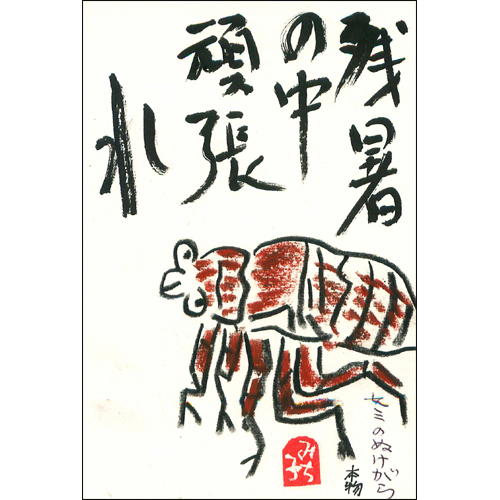 残暑
の中
頑張
れ
セミのぬけがら
本物
みち子